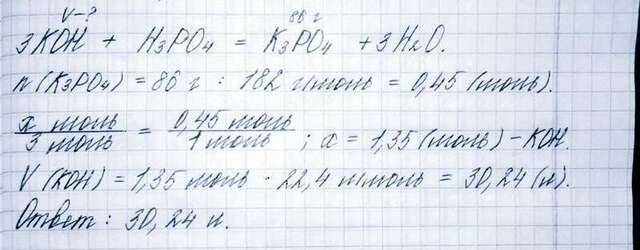 V-? 86 г
3KOH + H₃PO₄ = K₃PO₄ + 3H₂O.
n(K₃PO₄) = 86 г : 182 г/моль = 0,45 (моль).
x моль / 3 моль = 0,45 моль / 1 моль ; x = 1,35 (моль) - KOH.
V(KOH) = 1,35 моль · 22,4 л/моль = 30,24 (л).
Ответ: 30,24 л.